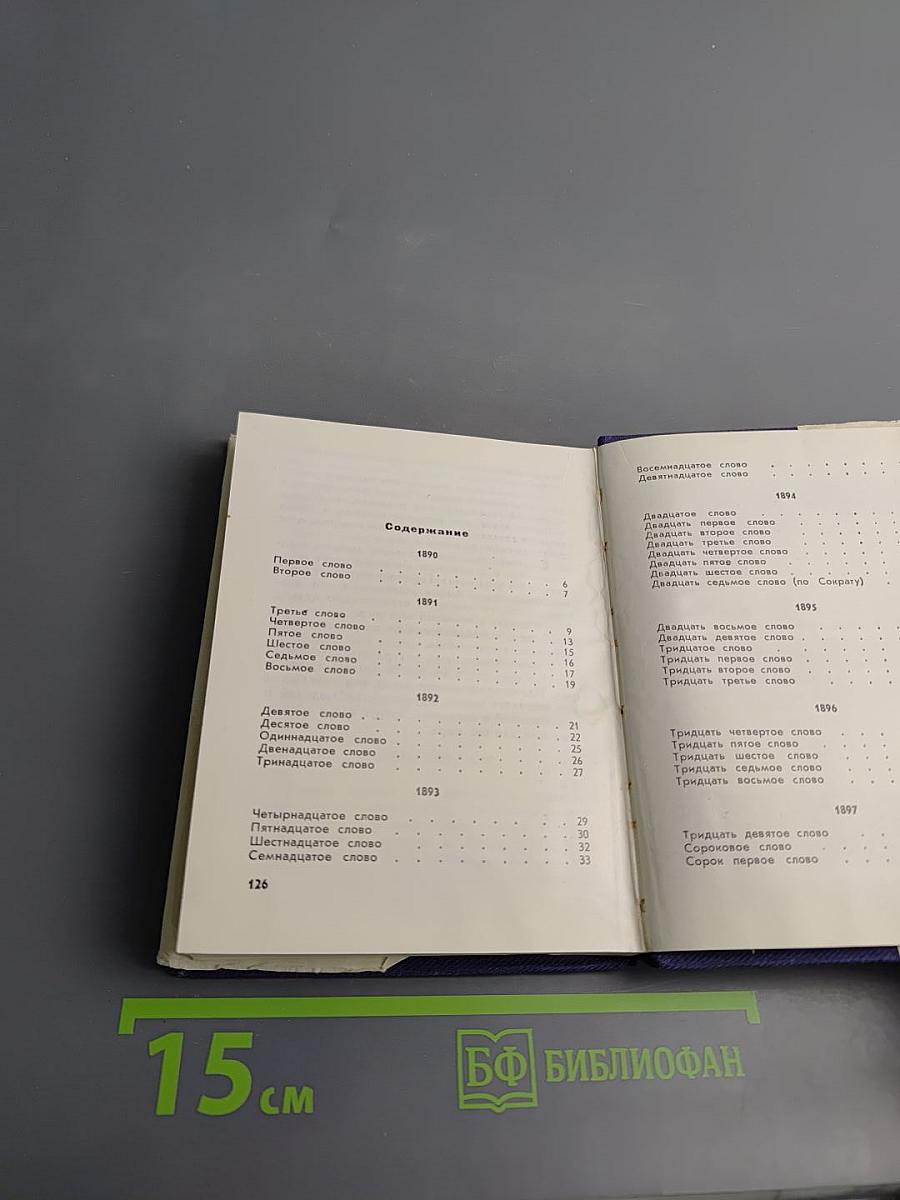 Содержание
1890
Первое слово . . . . . . . . . 6
Второе слово . . . . . . . . . 7
1891
Третье слово . . . . . . . . . 9
Четвертое слово . . . . . . . . 13
Пятое слово . . . . . . . . . 15
Шестое слово . . . . . . . . . 16
Седьмое слово . . . . . . . . 17
Восьмое слово . . . . . . . . 19
1892
Девятое слово . . . . . . . . . 21
Десятое слово . . . . . . . . 22
Одиннадцатое слово . . . . . . . 25
Двенадцатое слово . . . . . . . 26
Тринадцатое слово . . . . . . . 27
1893
Четырнадцатое слово . . . . . . . 29
Пятнадцатое слово . . . . . . . 30
Шестнадцатое слово . . . . . . . 32
Семнадцатое слово . . . . . . . 33
126
Восемнадцатое слово . . . . . .
Девятнадцатое слово . . . . . .
1894
Двадцатое слово . . . . . .
Двадцать первое слово . . . . .
Двадцать второе слово . . . . .
Двадцать третье слово . . . . .
Двадцать четвертое слово . . . . .
Двадцать пятое слово . . . . .
Двадцать шестое слово . . . . .
Двадцать седьмое слово (по Сократу) .
1895
Двадцать восьмое слово . . . . .
Двадцать девятое слово . . . . .
Тридцатое слово . . . . .
Тридцать первое слово . . . . .
Тридцать второе слово . . . . .
Тридцать третье слово . . . .
1896
Тридцать четвертое слово . . .
Тридцать пятое слово . . . .
Тридцать шестое слово . . .
Тридцать седьмое слово . . .
Тридцать восьмое слово . . .
1897
Тридцать девятое слово . .
Сороковое слово . . .
Сорок первое слово . . .
15 см
БФ БИБЛИОФАН